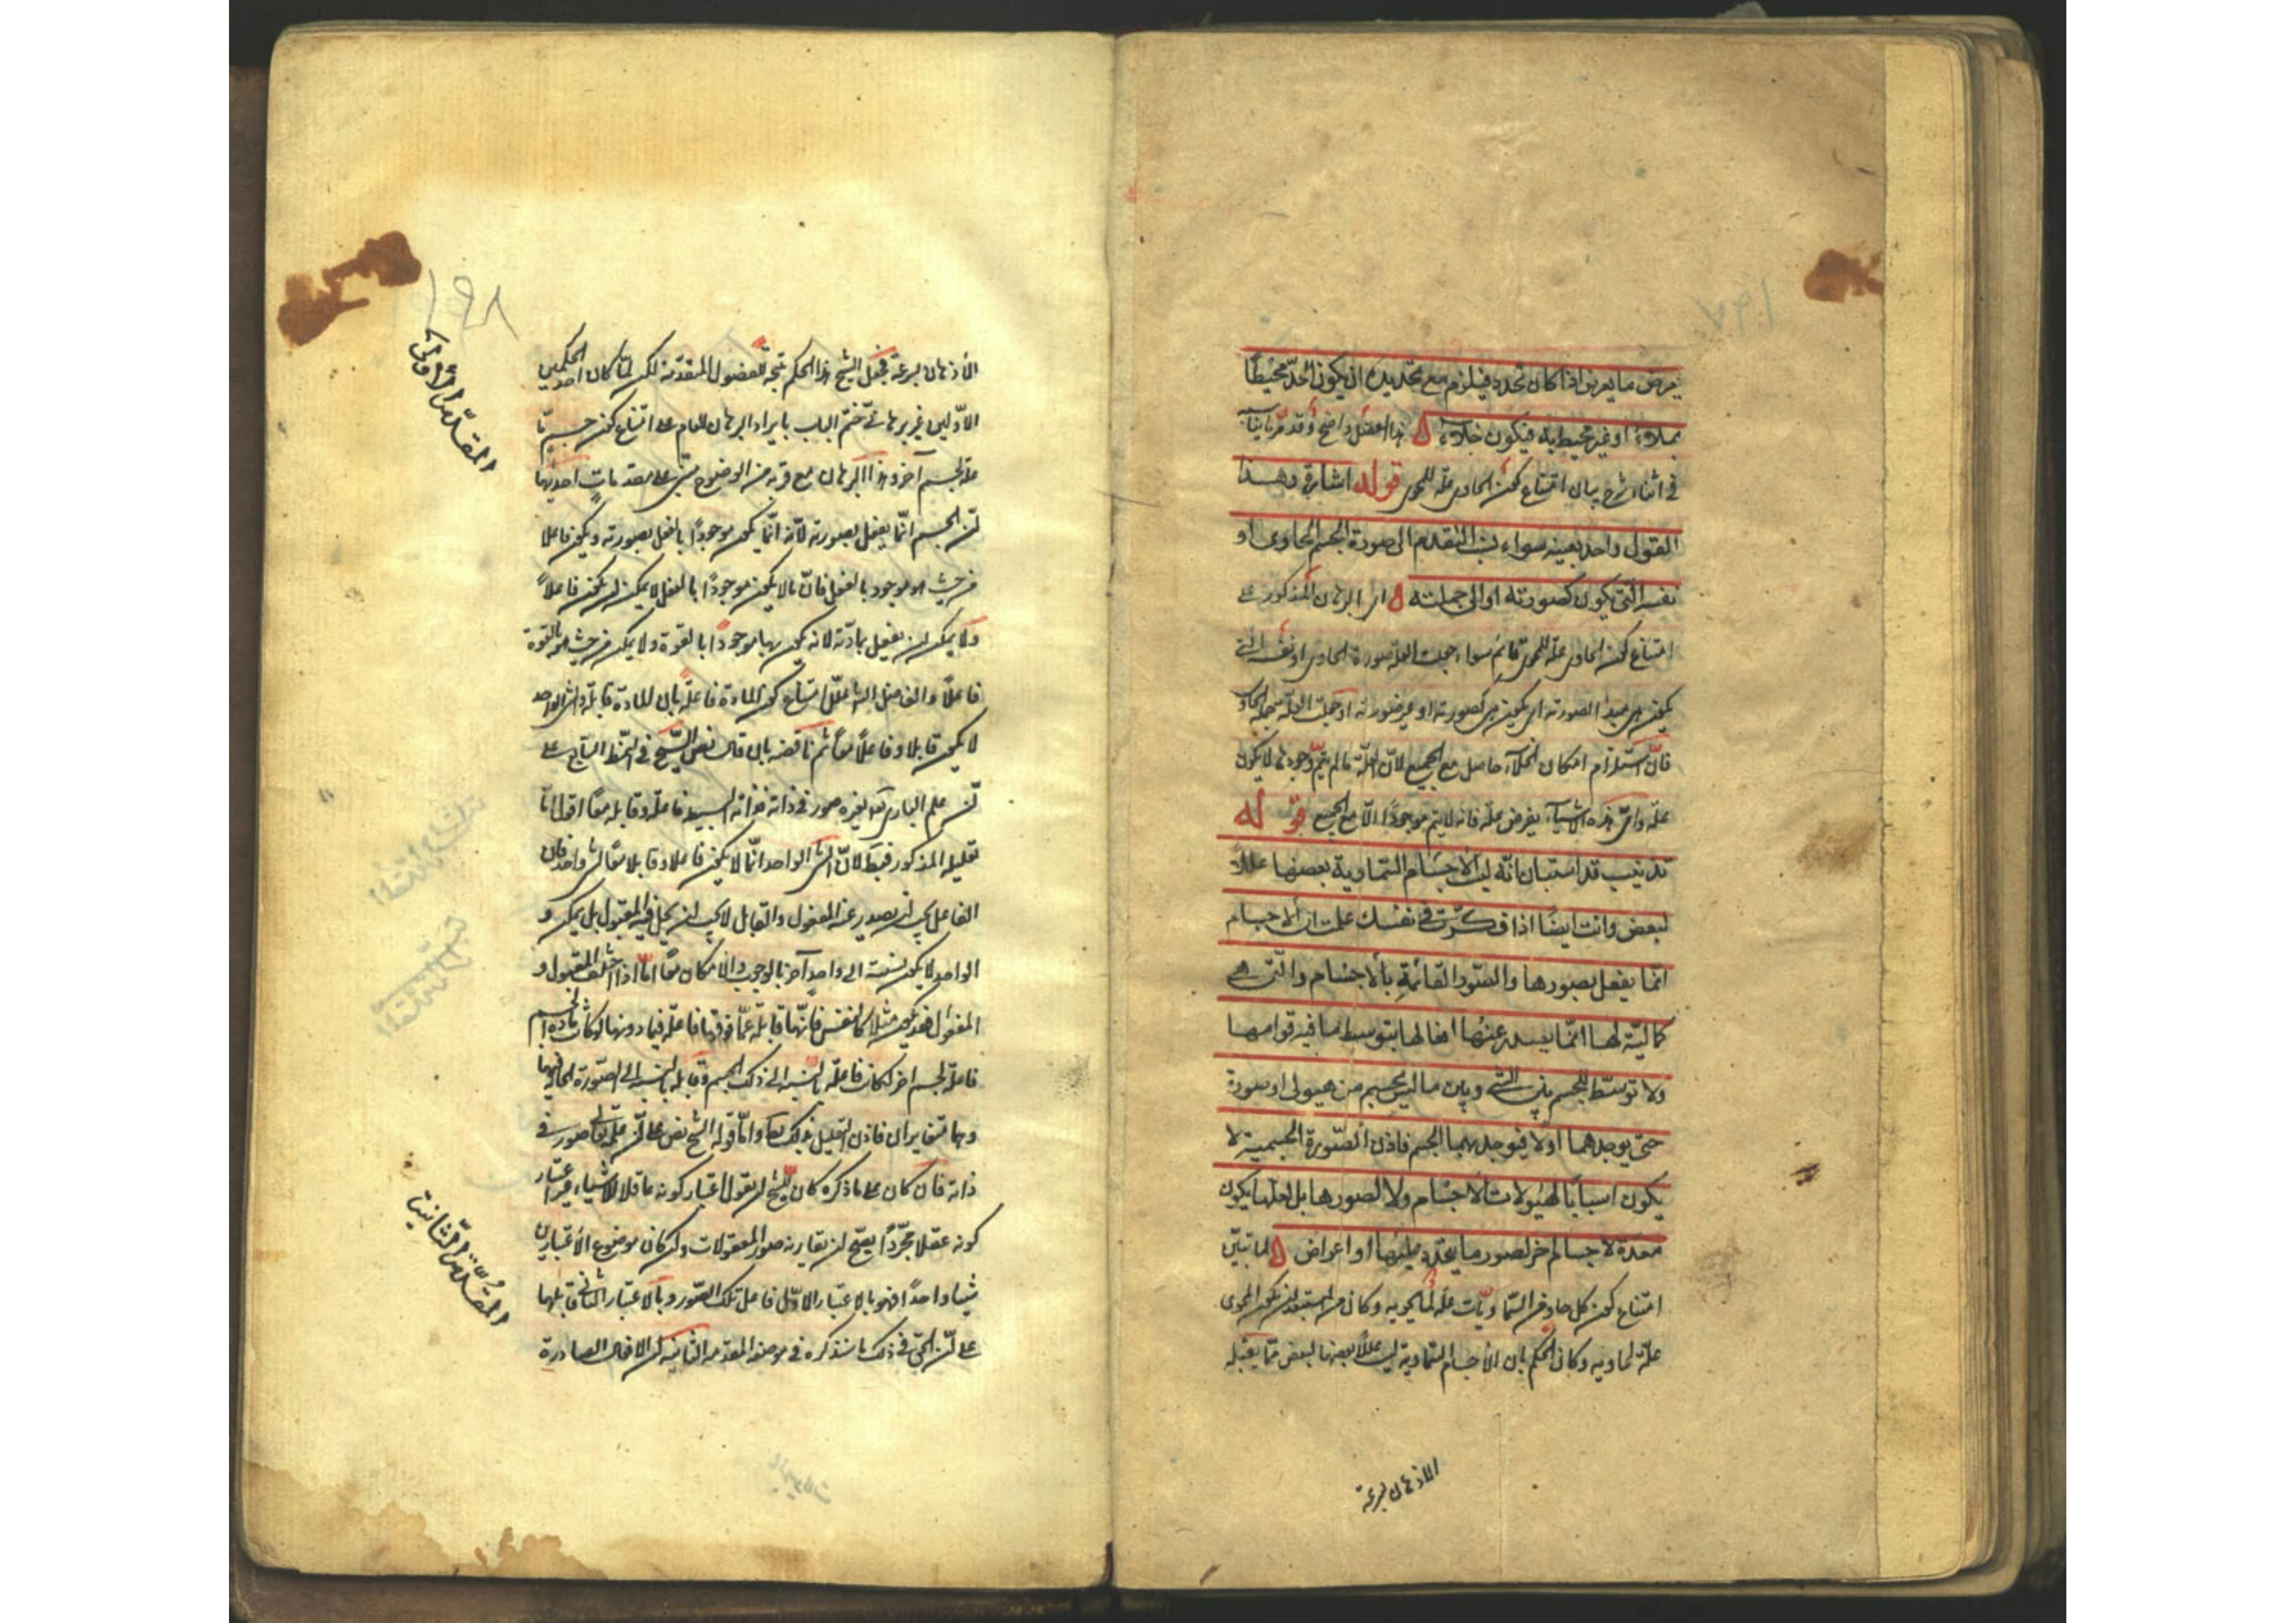 يعرض ما يعرض اذا كان تحدد فيلزم مع تحديده ان يكون الحد محيطا
بملاء او غير محيط به فيكون خلاء هذا الفصل واضح وقد مر بيانه
في اثناء شرح بيان امتناع كون الحاوى علة للمحوى قوله اشارة وهذا
القول واحد بعينه سواء نسب التقدم الى صورة الجسم الحاوى او
نفسه التى يكون كصورته او الى جملته اى البرهان المذكور على
امتناع كون الحاوى علة للمحوى قائم سواء جعلت العلة صورة الحاوى او نفسه التى
يكون هى مبدأ لصورته اى يكون هى كصورته او غير صورته او جعلت العلة جملة الحاوى
فان استلزام امكان الخلاء حاصل مع الجميع لان العلة ما لم يتم وجودها لا يكون
علة واى هذه الاشياء يفرض علة فانه لا يتم موجودا الا مع الجميع قوله
تذنيب قد استبان انه ليس الاجسام السماوية بعضها عللا
لبعض وانت ايضا اذا فكرت فى نفسك علمت ان الاجسام
انما يفعل بصورها والصور القائمة بالاجسام والتى هى
كمالية لها انما يصدر عنها افعالها بتوسط ما فيه قوامها
ولا توسط للجسم بين الشىء وبين ما ليس بجسم من هيولى او صورة
حتى يوجدهما اولا فيوجد بهما الجسم فاذن الصورة الجسمية لا
يكون اسبابا لهيولات الاجسام ولا لصورها بل لعلها يكون
معدة لاجسام اخر لصور ما يتجدد عليها او اعراض لما تبين
امتناع كون كل حاو من السماويات علة لما يحويه وكان من المستبعد ان يكون المحوى
علة لحاويه وكان الحكم بان الاجسام السماوية ليس عللا بعضها لبعض مما يقبله
الاذهان بسرعة
١٩٨
الاذهان بسرعة فجعل الشيخ هذا الحكم نتيجة للفصول المتقدمة لكن لما كان احد الحكمين
الاولين غير برهانى ختم الباب بايراد البرهان العام على امتناع كون جسم ما
علة لجسم آخر وهذا البرهان مع قربه من الوضوح مبنى على مقدمات احديها
المقدمة الاولى
ان الجسم انما يفعل بصورته لانه انما يكون موجودا بالفعل بصورته ويكون فاعلا
من حيث هو موجود بالفعل فان ما لا يكون موجودا بالفعل لا يمكن ان يكون فاعلا
ولا يمكن ان يفعل بمادته لانه يكون بها موجودا بالقوة ولا يمكن من حيث هو بالقوة
فاعلا والفاضل الشارح علل امتناع كون المادة فاعلة بان المادة قابلة والشىء الواحد
لا يكون قابلا وفاعلا معا ثم ناقضه بان قال نص الشيخ فى النمط السابع على
ان علم البارى تعالى بغيره صور فى ذاته فذاته البسيط فاعلة وقابلة معا اقول اما
تعليله المذكور فيبطل لان الشىء الواحد انما لا يكون فاعلا وقابلا معا لشىء واحد فان
الفاعل يجب ان يصدر عنه المفعول والقابل لا يجب ان يحل فيه المقبول بل يمكن و
الواحد لا يكون نسبته الى واحد آخر بالوجوب والامكان معا اما اذا اختلف المقبول و
المفعول فقد يكون مثلا كالنفس فانها قابلة عما فوقها فاعلة فيما دونها ولو كانت مادة الجسم
فاعلة لجسم اخر لكانت فاعلة بالنسبة الى ذلك الجسم وقابلة بالنسبة الى الصورة الحالة فيها
وهما متغايران فاذن التعليل بذلك باطل واما قوله الشيخ نص على ان علمه تعالى صور فى
ذاته فان كان على ما ذكره كان للشيخ ان يقول اعتبار كونه عاقلا للاشياء غير اعتبار
كونه عقلا مجردا يصح ان يقارنه صور المعقولات ولو كان موضوع الاعتبارين
شيئا واحدا فهو بالاعتبار الاول فاعل تلك الصور وبالاعتبار الثانى قابلها
على ان الحق فى ذلك ما سنذكره فى موضعه المقدمة الثانية ان الافعال الصادرة
المقدمة الثانية